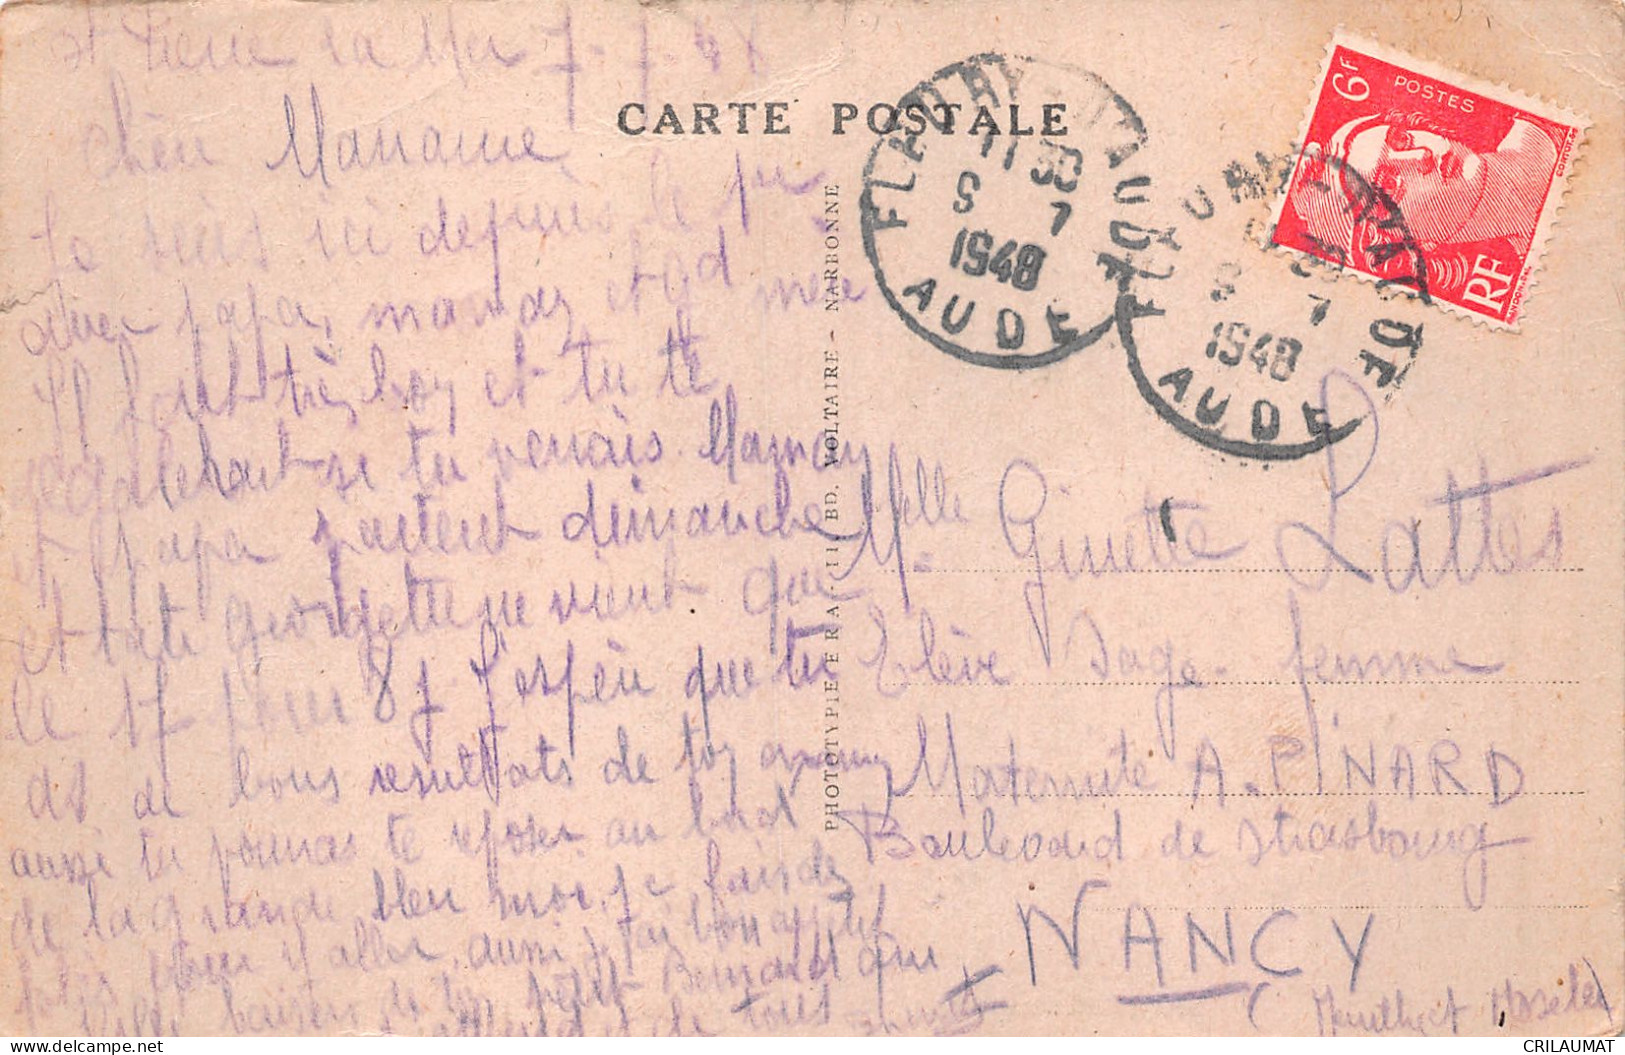 St Pierre la Mer 7-7-48
CARTE POSTALE
Chère Marraine
Je suis ici depuis le 1er
avec papa, maman et gd mère
Il fait très bon et tu te
si tu venais. Maman
et papa partent dimanche
et tate georgette ne vient que
le 17 pour 8 j. J'espère que tu
as de bons resultats de ton examen
aussi tu pourras te reposer au bord
de la grande bleu moi, je fais de
pour y aller aussi, j'ai bon appétit
baisers de ton petit Bernard qui
et de tous
PHOTOTYPIE ERA - 11 BD. VOLTAIRE - NARBONNE
FLEURY D'AUDE
11 30
9 7
1948
AUDE
FLEURY D'AUDE
9 7
1948
AUDE
6F
POSTES
RF
Melle Ginette Lattes
Elève Sage-femme
Maternité A. PINARD
Boulevard de Strasbourg
NANCY
(Meurthe et Moselle)
CRILAUMAT